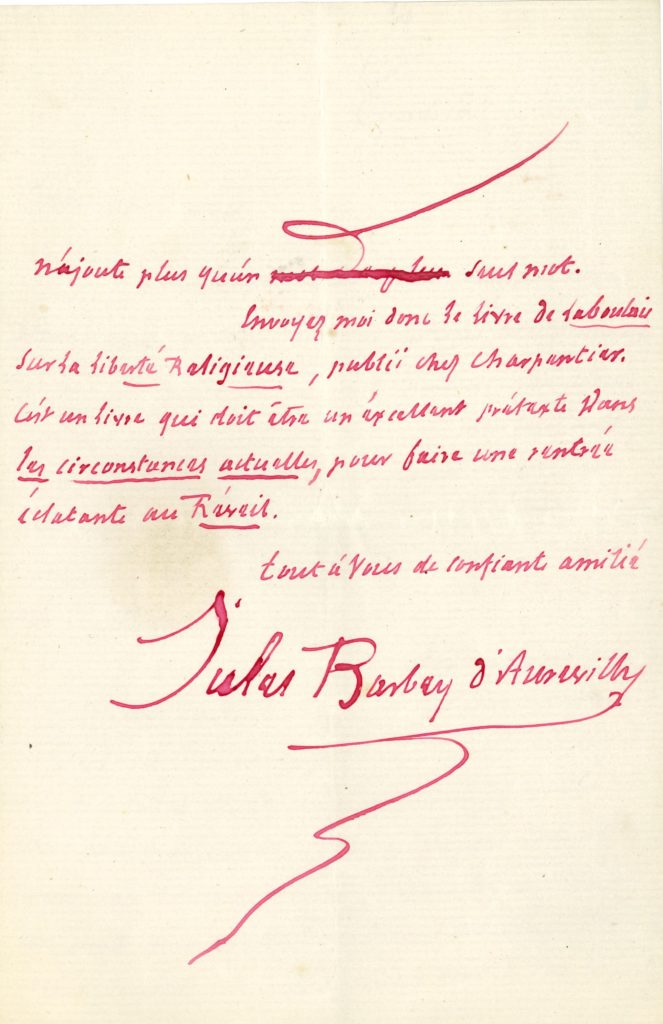 n'ajoute plus qu'un seul mot.
Envoyez moi donc le livre de Laboulaie
sur la liberté Religieuse, publié chez Charpentier.
C'est un livre qui doit être un éxcellent prétexte Dans
les circonstances actuelles, pour faire une rentrée
éclatante au Réveil.
tout à Vous de confiante amitié
Jules Barbey d'Aurevilly